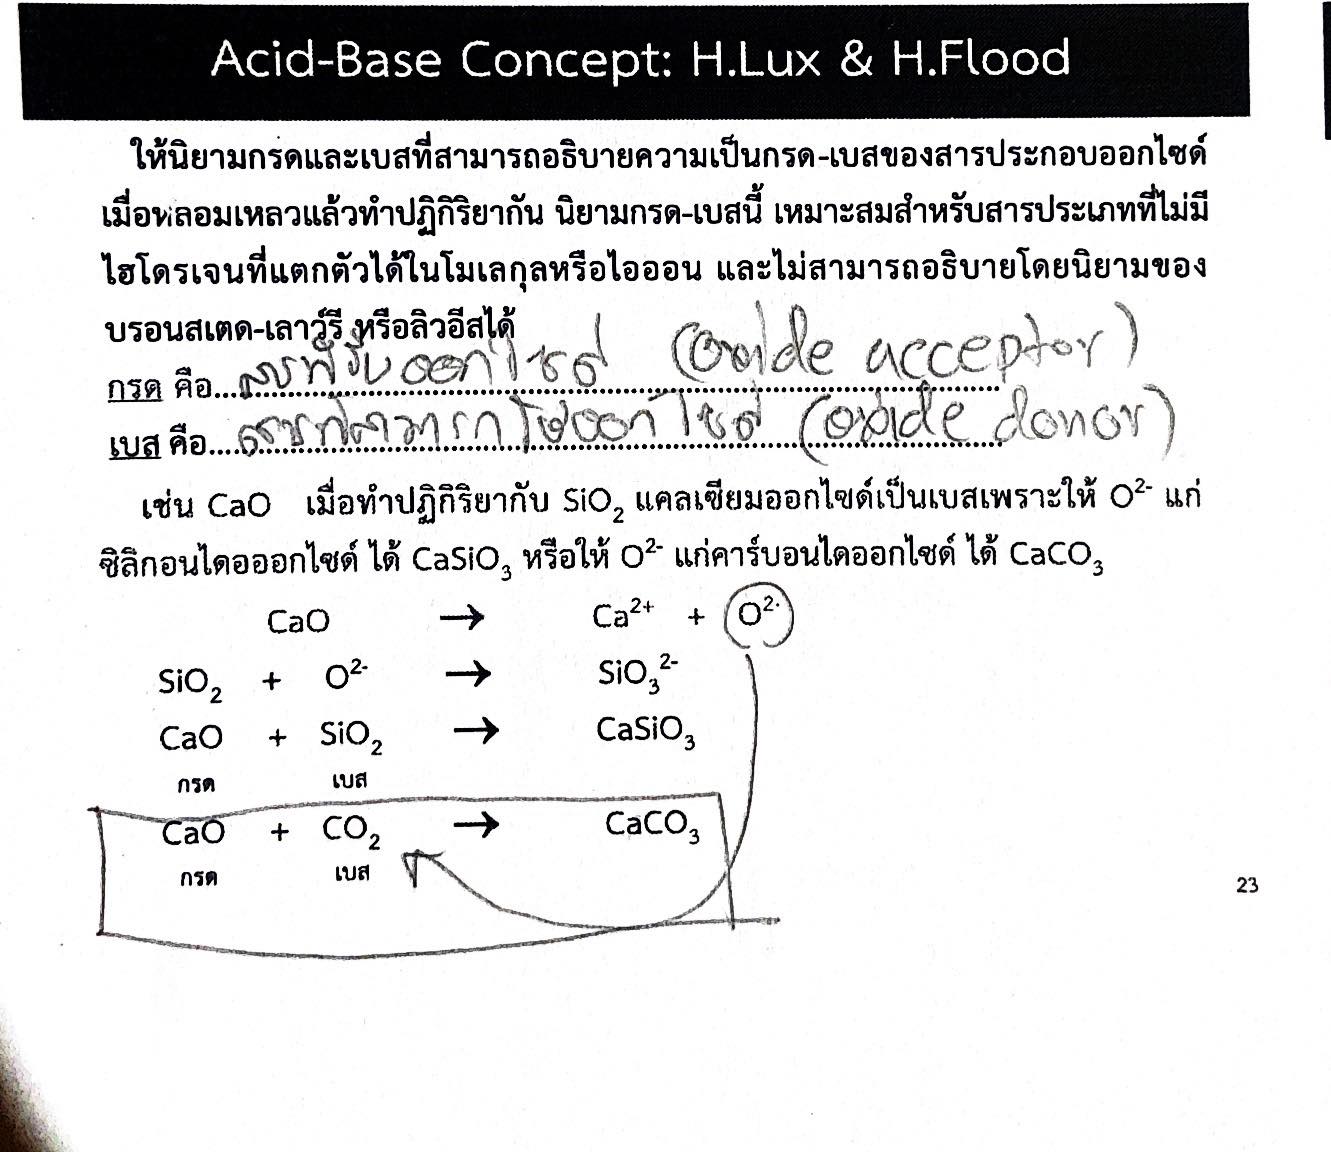 Acid-Base Concept: H.Lux & H.Flood
ให้นิยามกรดและเบสที่สามารถอธิบายความเป็นกรด-เบสของสารประกอบออกไซด์
เมื่อหลอมเหลวแล้วทำปฏิกิริยากัน นิยามกรด-เบสนี้ เหมาะสมสำหรับสารประเภทที่ไม่มี
ไฮโดรเจนที่แตกตัวได้ในโมเลกุลหรือไอออน และไม่สามารถอธิบายโดยนิยามของ
บรอนสเตด-เลาว์รี หรือลิวอีสได้
กรด คือ...สารที่รับออกไซด์ (oxide acceptor)
เบส คือ....สารที่สามารถให้ออกไซด์ (oxide donor)
เช่น CaO เมื่อทำปฏิกิริยากับ SiO₂ แคลเซียมออกไซด์เป็นเบสเพราะให้ O²⁻ แก่
ซิลิกอนไดอออกไซด์ ได้ CaSiO₃ หรือให้ O²⁻ แก่คาร์บอนไดออกไซด์ ได้ CaCO₃
CaO → Ca²⁺ + O²⁻
SiO₂ + O²⁻ → SiO₃²⁻
CaO + SiO₂ → CaSiO₃
กรด เบส
CaO + CO₂ → CaCO₃
กรด เบส
23